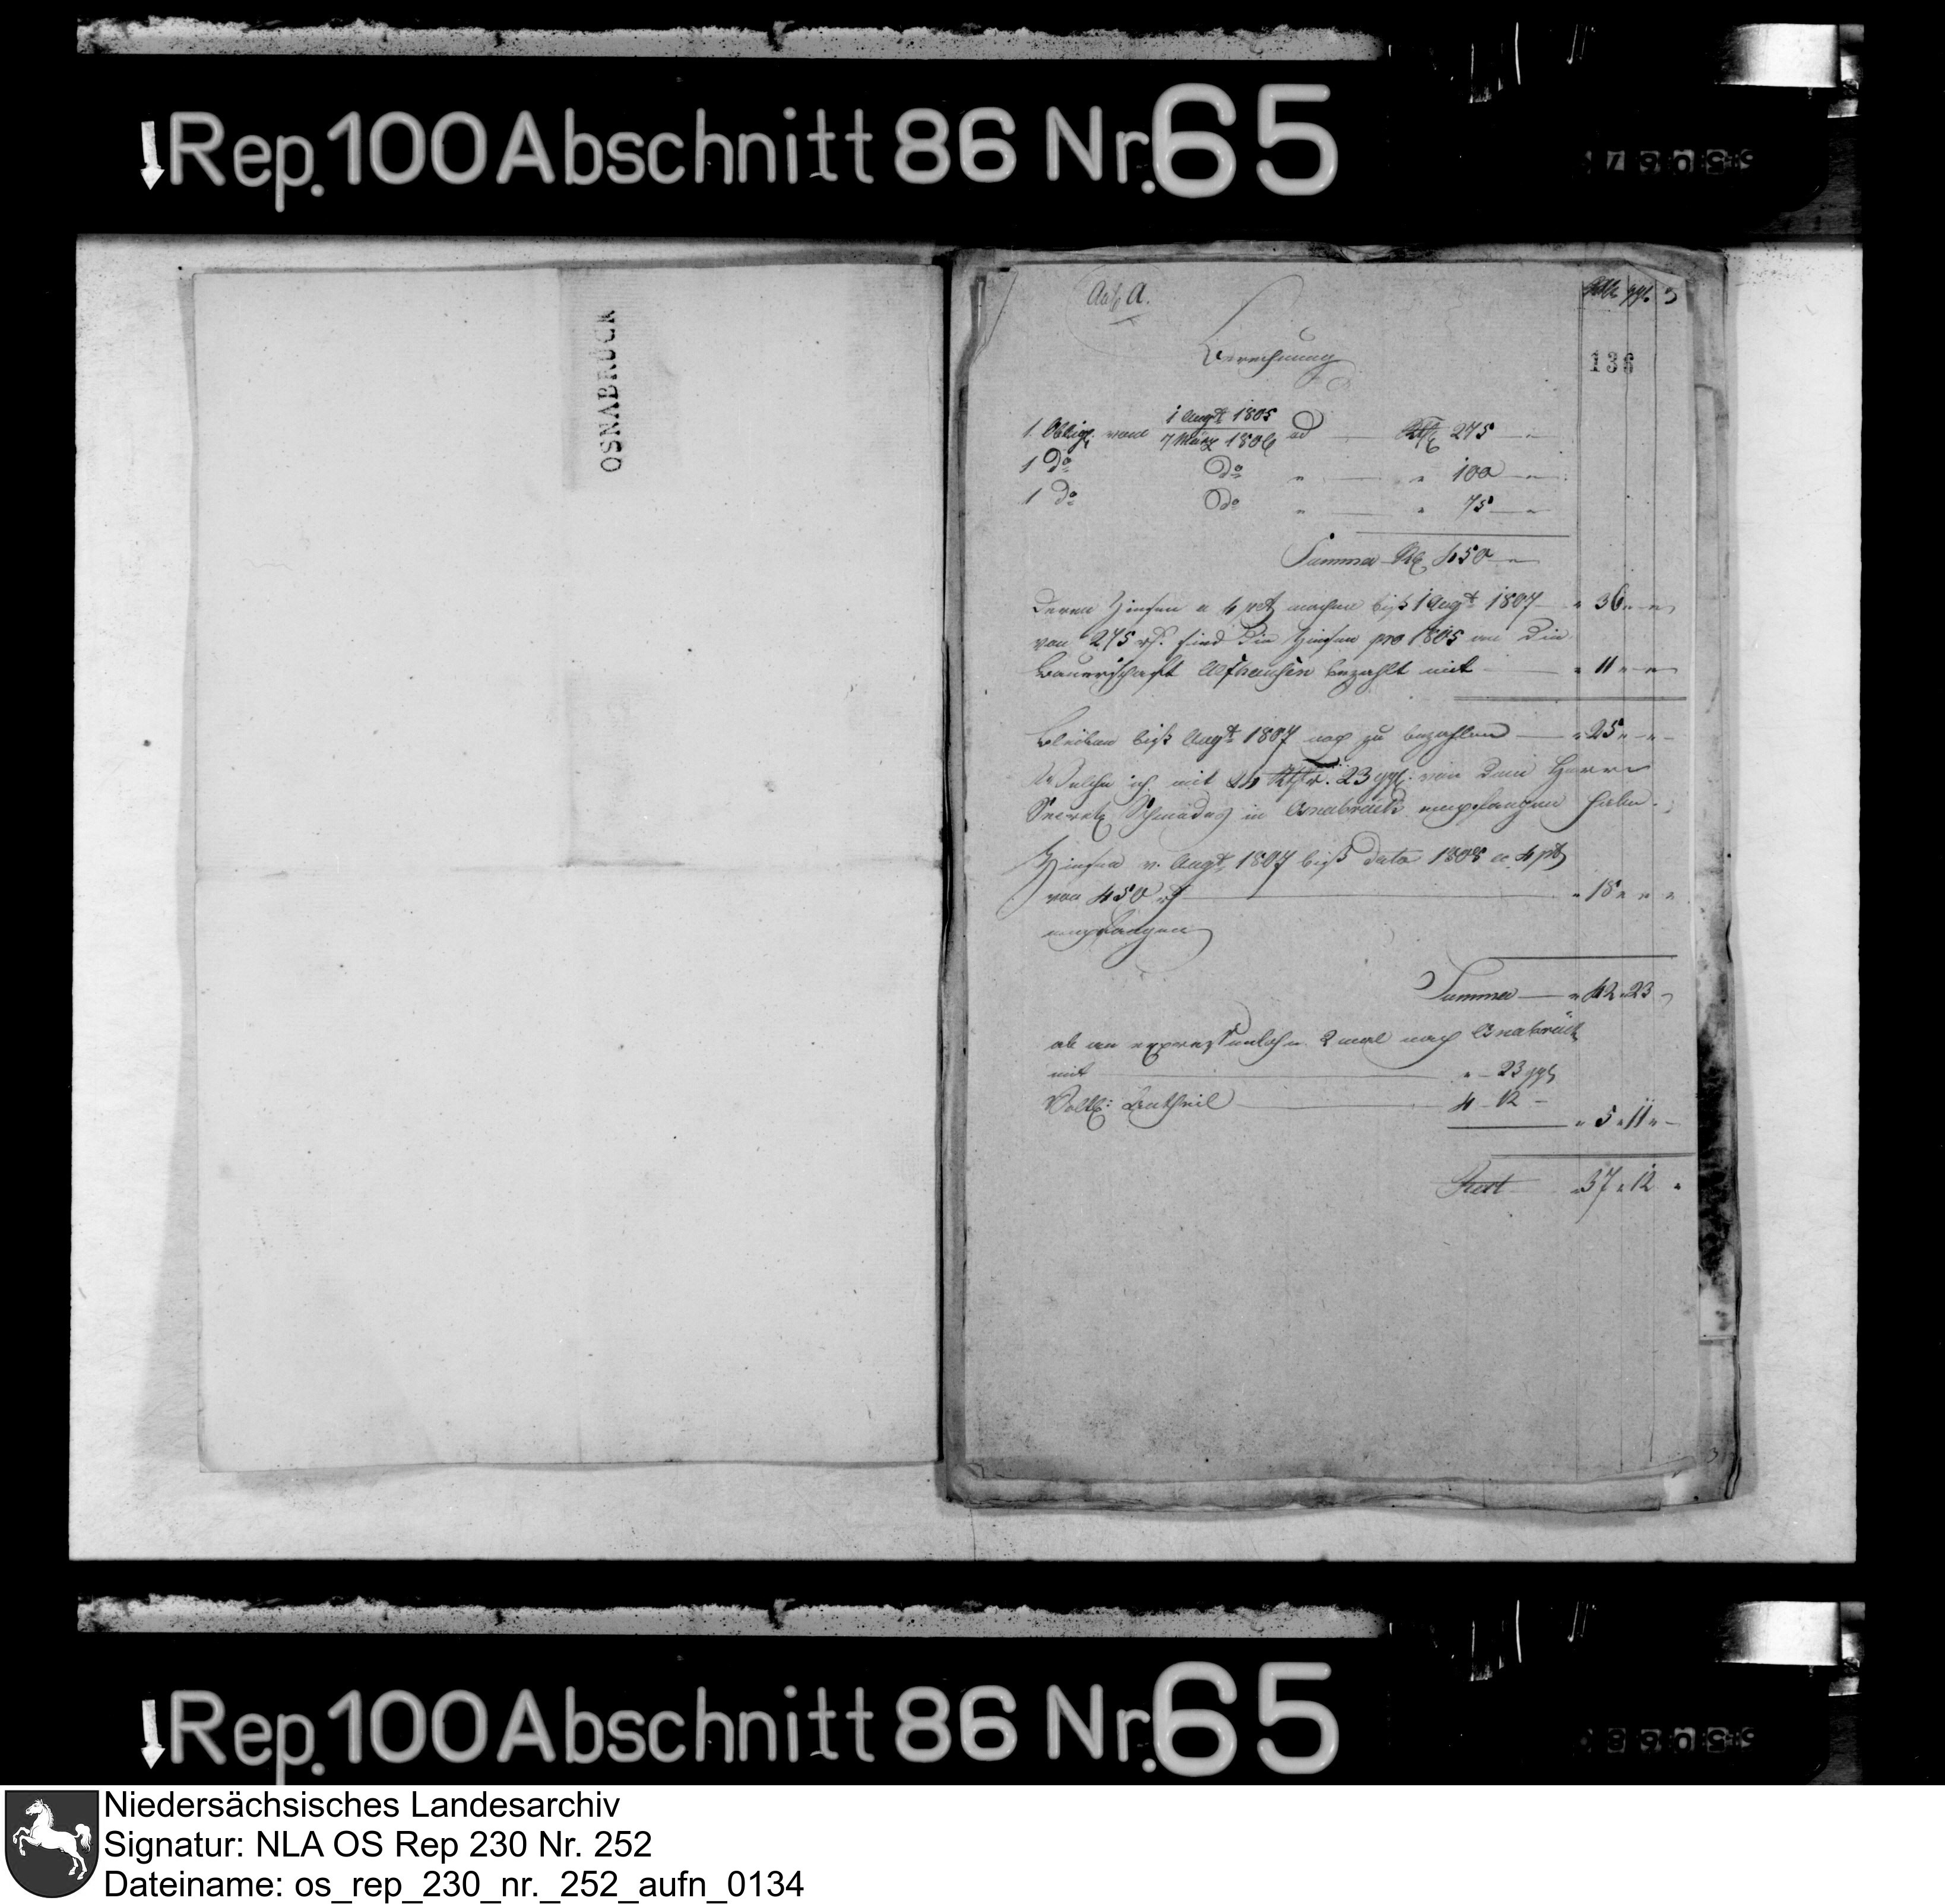 Rep. 100 Abschnitt 86 Nr. 65
OSNABRÜCK
A.
136
Berechnung
1 Oblig. vom 1 Augt 1805 / 7 März 1806 ad 275
1 Do Do " " 100
1 Do Do " " 75
Summa 450
Deren Zinsen a 4 pct machen biß 1 Augt 1807 " 36 " "
von 275 sind die Zinsen pro 1805 von die
Bauerschaft bezahlt mit " 11 " "
Bleiben biß Augt 1807 noch zu bezahlen " 25 " "
Welche ich mit 24 Rthlr. 23 ggl. von dem Herrn
Secret. in Osnabrück empfangen habe.
Zinsen v. Augt 1807 biß dato 1808 a 4 pct
von 450 " 18 " "
empfangen
Summa " 42 " 23
ab an expressenlohn 2 mal nach Osnabrück
mit " 23 ggl
Antheil 4 12
" 5 " 11 "
Rest " 37 " 12 "
Rep. 100 Abschnitt 86 Nr. 65
Niedersächsisches Landesarchiv
Signatur: NLA OS Rep 230 Nr. 252
Dateiname: os_rep_230_nr._252_aufn_0134